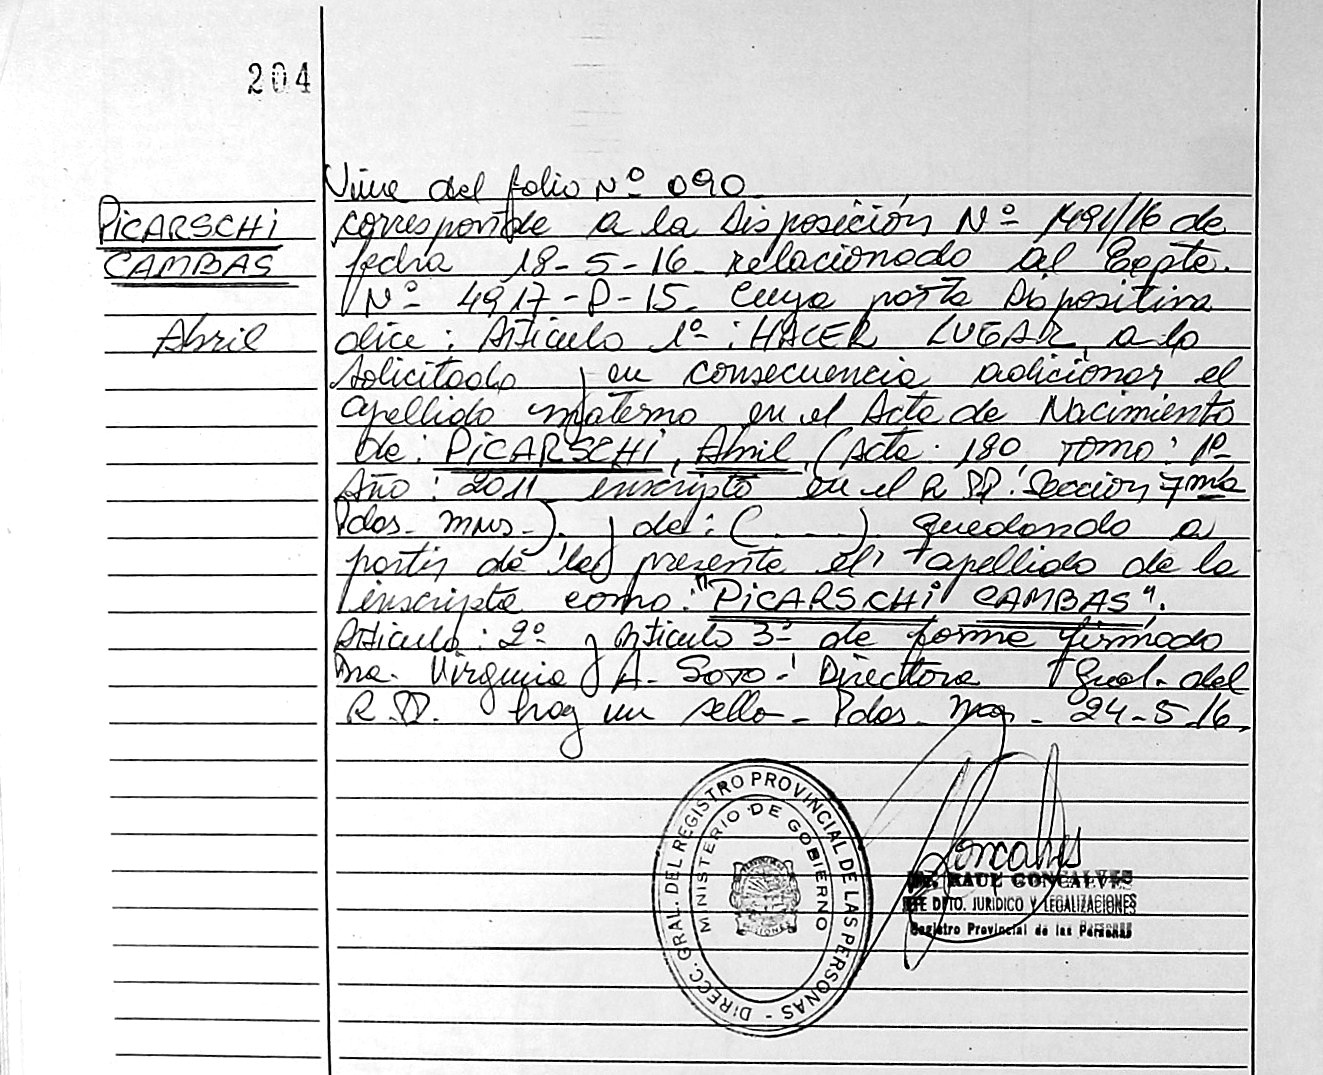 204
Viene del folio Nº 090
PiCARSCHi
CAMBAS
Abril
corresponde a la Disposición Nº 1491/16 de
fecha 18-5-16 relacionado al Expte.
Nº 4917-P-15. Cuya parte Dispositiva
dice: Artículo 1º: HACER LUGAR, a lo
solicitado y en consecuencia adicionar el
apellido materno en el Acta de Nacimiento
de: PiCARSCHi, Abril, (Acta: 180 Tomo: 1º
Año: 2011 inscripta en el R.PP. Seccion 7ma
Pdas. Mns.) y de: (...). quedando a
partir de la presente el apellido de la
inscripta como: "PiCARSCHi CAMBAS".
Articulo: 2º y Articulo 3º de forma firmado
Dra. Virginia A. Soto. Directora Gral. del
R.PP. hay un sello - Pdas. Mns. - 24-5-16
DIRECC. GRAL. DEL REGISTRO PROVINCIAL DE LAS PERSONAS -
MINISTERIO DE GOBIERNO
MISIONES
Goncalves
Dr. RAUL GONCALVES
JEFE DPTO. JURIDICO Y LEGALIZACIONES
Registro Provincial de las Personas